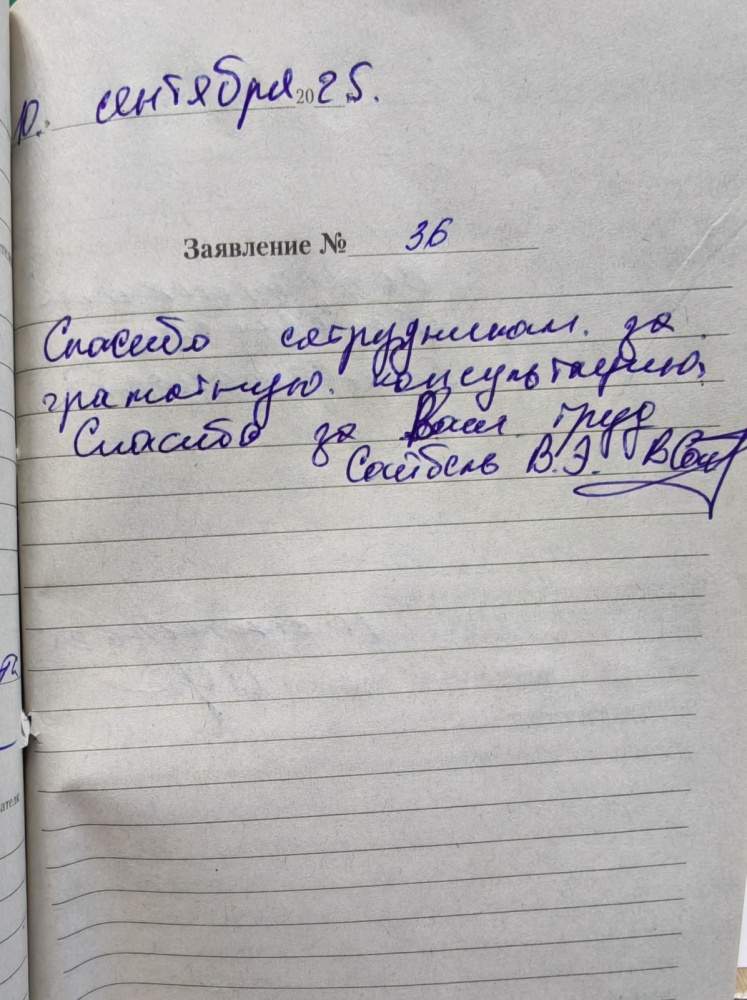 10. сентября 2025.
Заявление № 36
Спасибо сотрудникам. за
грамотную. консультацию.
Спасибо за Ваш труд
Сайбель В.Э.